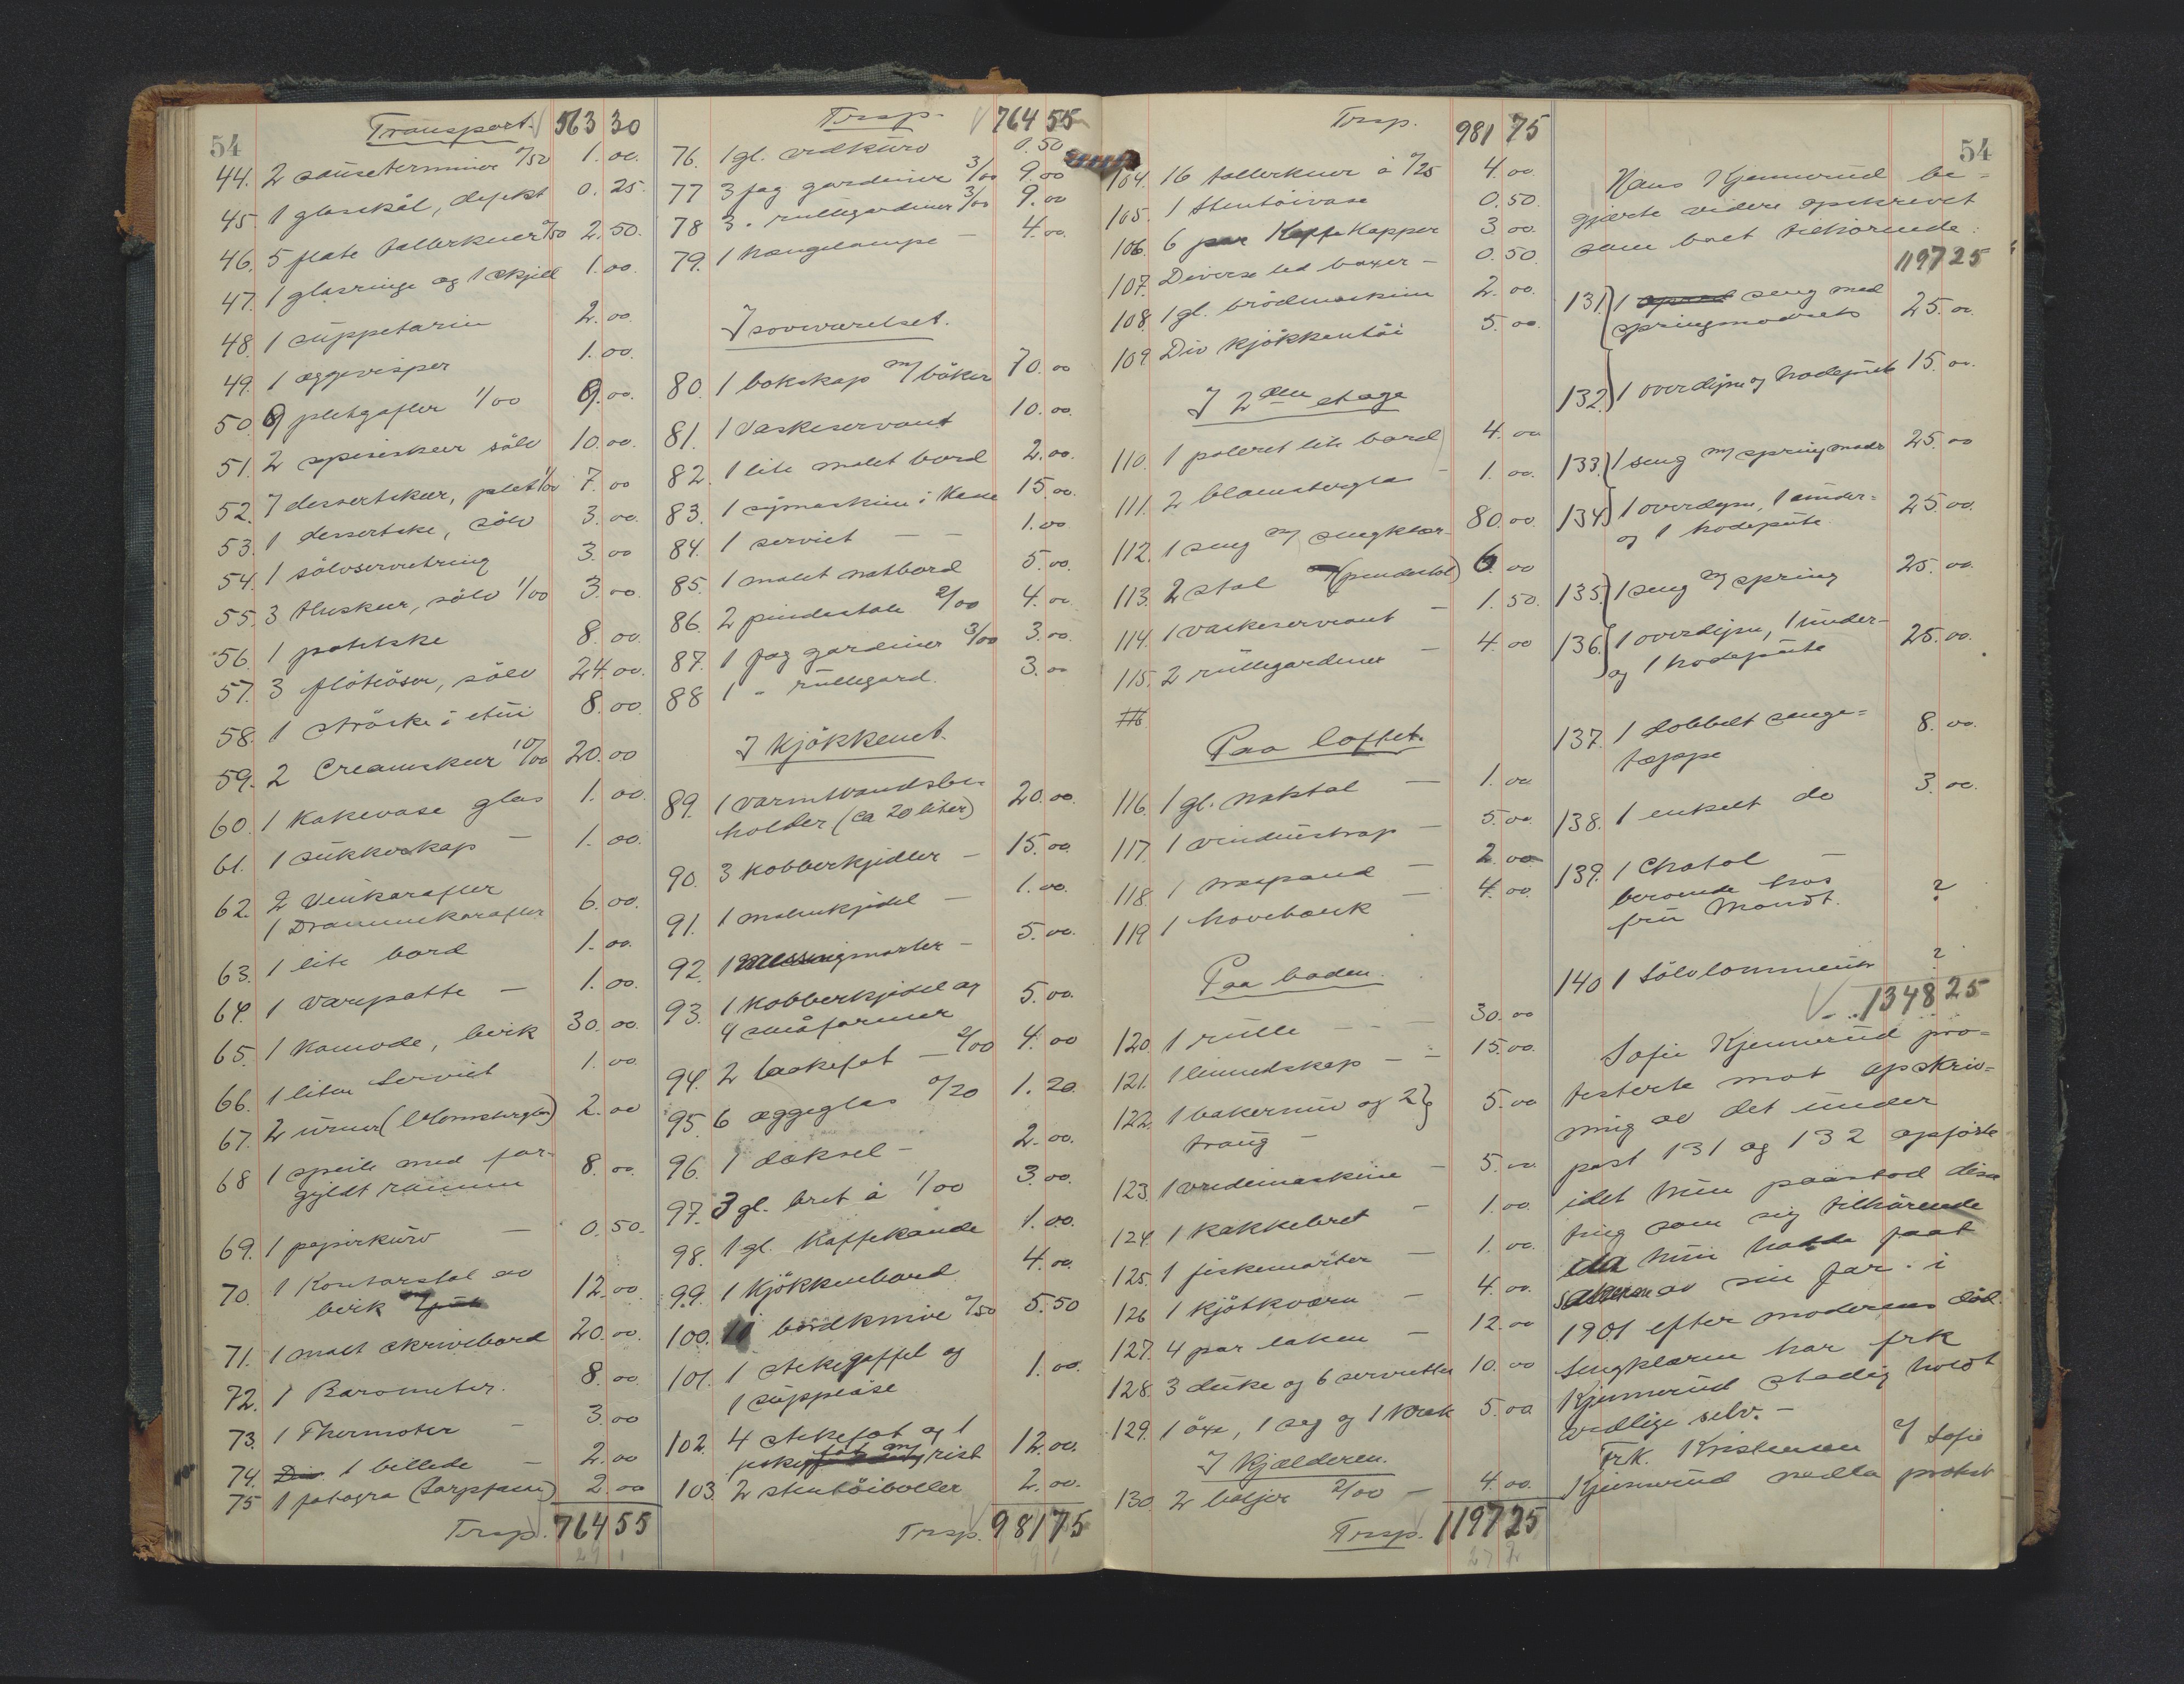 54
Transport. 563 30
44. 2 sauseterriner 0/50 1.00.
45. 1 glasskål, defekt 0.25.
46. 5 flate tallerkener 0/50 2.50.
47. 1 glasringe og 1 skjell 1.00.
48. 1 suppeterin 2.00
49. 1 æggevisper 1.00.
50. 9 pletgafler 1/00 9.00.
51. 2 spiseskeer sölv 10.00.
52. 7 dessertskeer, plet 1/00 7.00
53. 1 dessertske, sölv 3.00.
54. 1 sölvservietring 3.00
55. 3 theskeer, sölv 1/00 3.00.
56. 1 potetske 8.00.
57. 3 flöteöser, sölv 24.00.
58. 1 ströske i etui 8.00.
59. 2 Creamskeer 10/00 20.00
60. 1 Kakevase glas 1.00.
61. 1 sukkerskap — 1.00.
62. 2 Vinkarafler
1 Drammekarafler 6.00.
63. 1 lite bord 1.00.
64. 1 varepotte — 1.00.
65. 1 Komode, beik 30.00.
66. 1 liten Serviet 1.00.
67. 2 urner (blomsterglas) 2.00
68 1 speile med for-
gyldt ramme 8.00.
69. 1 papirkurv — 0.50.
70. 1 Kontorstol av
beik 12.00.
71. 1 malt skrivebord 20.00.
72. 1 Barometer. 8.00.
73. 1 Thermoter — 3.00
74. Div 1 billede — 2.00
75 1 fotogra (Torpsfoss) 2.00
Trsp. 764 55
Trsp. 764 55
76. 1 gl. vedkurv 0.50
77 3 fag gardiner 3/00 9.00
78 3 " rullegardiner 3/00 9.00
79. 1 hængelampe — 4.00.
I soveværelset.
80. 1 bokskap m/ böker 70.00
81. 1 Vaskeservant 10.00.
82. 1 lite malet bord 2.00.
83. 1 symaskin i Kasse 15.00.
84. 1 serviet — — 1.00
85. 1 malet natbord 5.00.
86. 2 pindestole 2/00 4.00
87. 1 fag gardiner 3/00 3.00.
88 1 " rullegard. 3.00
I Kjökkenet.
89. 1 varmtvandsbe-
holder (ca 20 liter) 20.00.
90. 3 Kobberkjedler — 15.00
91. 1 malmkjedel — 1.00.
92. 1 messingmorter — 5.00.
93. 1 Kobberkjedel og
4 småformer 5.00.
94. 2 vaskefat — 2/00 4.00
95. 6 æggeglas 0/20 1.20.
96. 1 dörsel — 2.00.
97. 3 gl. bret à 1/00 3.00.
98. 1 gl. Kaffekande 1.00.
99. 1 Kjökkenbord 4.00.
100. 11 bordknive 0/50 5.50
101. 1 stekegaffel og
1 suppeöse 1.00.
102. 4 stekefat og 1
fiskefat m/ rist 12.00.
103. 2 stentöiboller 2.00.
Trsp. 981 75
Trsp. 981 75
104. 16 tallerkner à 0/25 4.00.
105. 1 Stentöivase 0.50.
106. 6 par Kaffe Kopper 3.00.
107. Diverse led boxer — 0.50.
108. 1 gl. brödmaskin 2.00.
109. Div kjökkentöi 5.00.
I 2den etage
110. 1 poleret lite bord 4.00
111. 2 blomsterglas — 1.00.
112. 1 seng m/ sengklær 80.00
113. 2 stol (pindestol) 6.00
114. 1 vaskeservant — 1.50.
115. 2 rullegardiner — 4.00
116
Paa loftet.
116. 1 gl. natstol — 1.00
117. 1 vindustrap — 5.00
118 1 — 2.00
119 1 hövelbænk — 4.00.
Paa boden.
120. 1 rulle — — — 30.00
121. 1 linnedskap — — 15.00.
122. 1 bakerum og 2
traug — 5.00
123. 1 vridemaskine — 5.00
124. 1 kakkebret — 1.00.
125. 1 fiskemorter — 1.00.
126 1 Kjötkværn — 4.00.
127. 4 par laken — 12.00
128. 3 duke og 6 servietter 10.00
129. 1 öxe, 1 sag og 1 Krak 5.00
I Kjælderen.
130. 2 baljer 2/00 — 4.00.
Trsp. 1197 25
54
Hans Kjennerud be-
gjærte videre opskrevet
som boet tilhörende:
1197 25
131. 1 seng med
springmadrats 25.00.
132. 1 overdyne og hodepute 15.00.
133. 1 seng m/ spring madr 25.00
134. 1 overdyne, 1 under-
og 1 hodepute. 25.00.
135. 1 seng m/ spring 25.00.
136. 1 overdyne, 1 under-
og 1 hodepute 25.00.
137. 1 dobbelt senge-
tæppe 8.00.
138. 1 enkelt do 3.00.
139. 1 Chatol —
beroende hos
fru Mondt. ?
140 1 Sölvlommeur ?
1348 25
Sofie Kjennerud pro-
testerte mot opskriv-
ning av det under
post 131 og 132 opförte
idet hun paastod disse
ting som sig tilhörende
ida hun hadde faat
av sin far. i
1901 efter moderens död.
Sengklærne har frk
Kjennerud stadig holdt
vedlige selv. —
Frk. Kristensen o/ Sofie
Kjennerud nedla protest